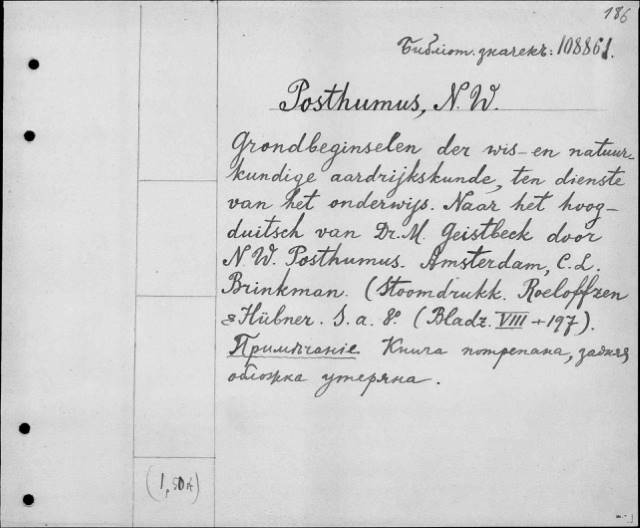 186
Библіот. значекъ: 108861.
Posthumus, N.W.
Grondbeginselen der wis- en natuur-
kundige aardrijkskunde, ten dienste
van het onderwijs. Naar het hoog-
duitsch van Dr. M. Geistbeck door
N W. Posthumus. Amsterdam, C. L.
Brinkman. (Stoomdrukk. Roeloffzen
& Hübner. S. a. 8º. (Bladz. VIII + 197).
Примѣчаніе Книга потрепана, задняя
обложка утеряна.
(1,50